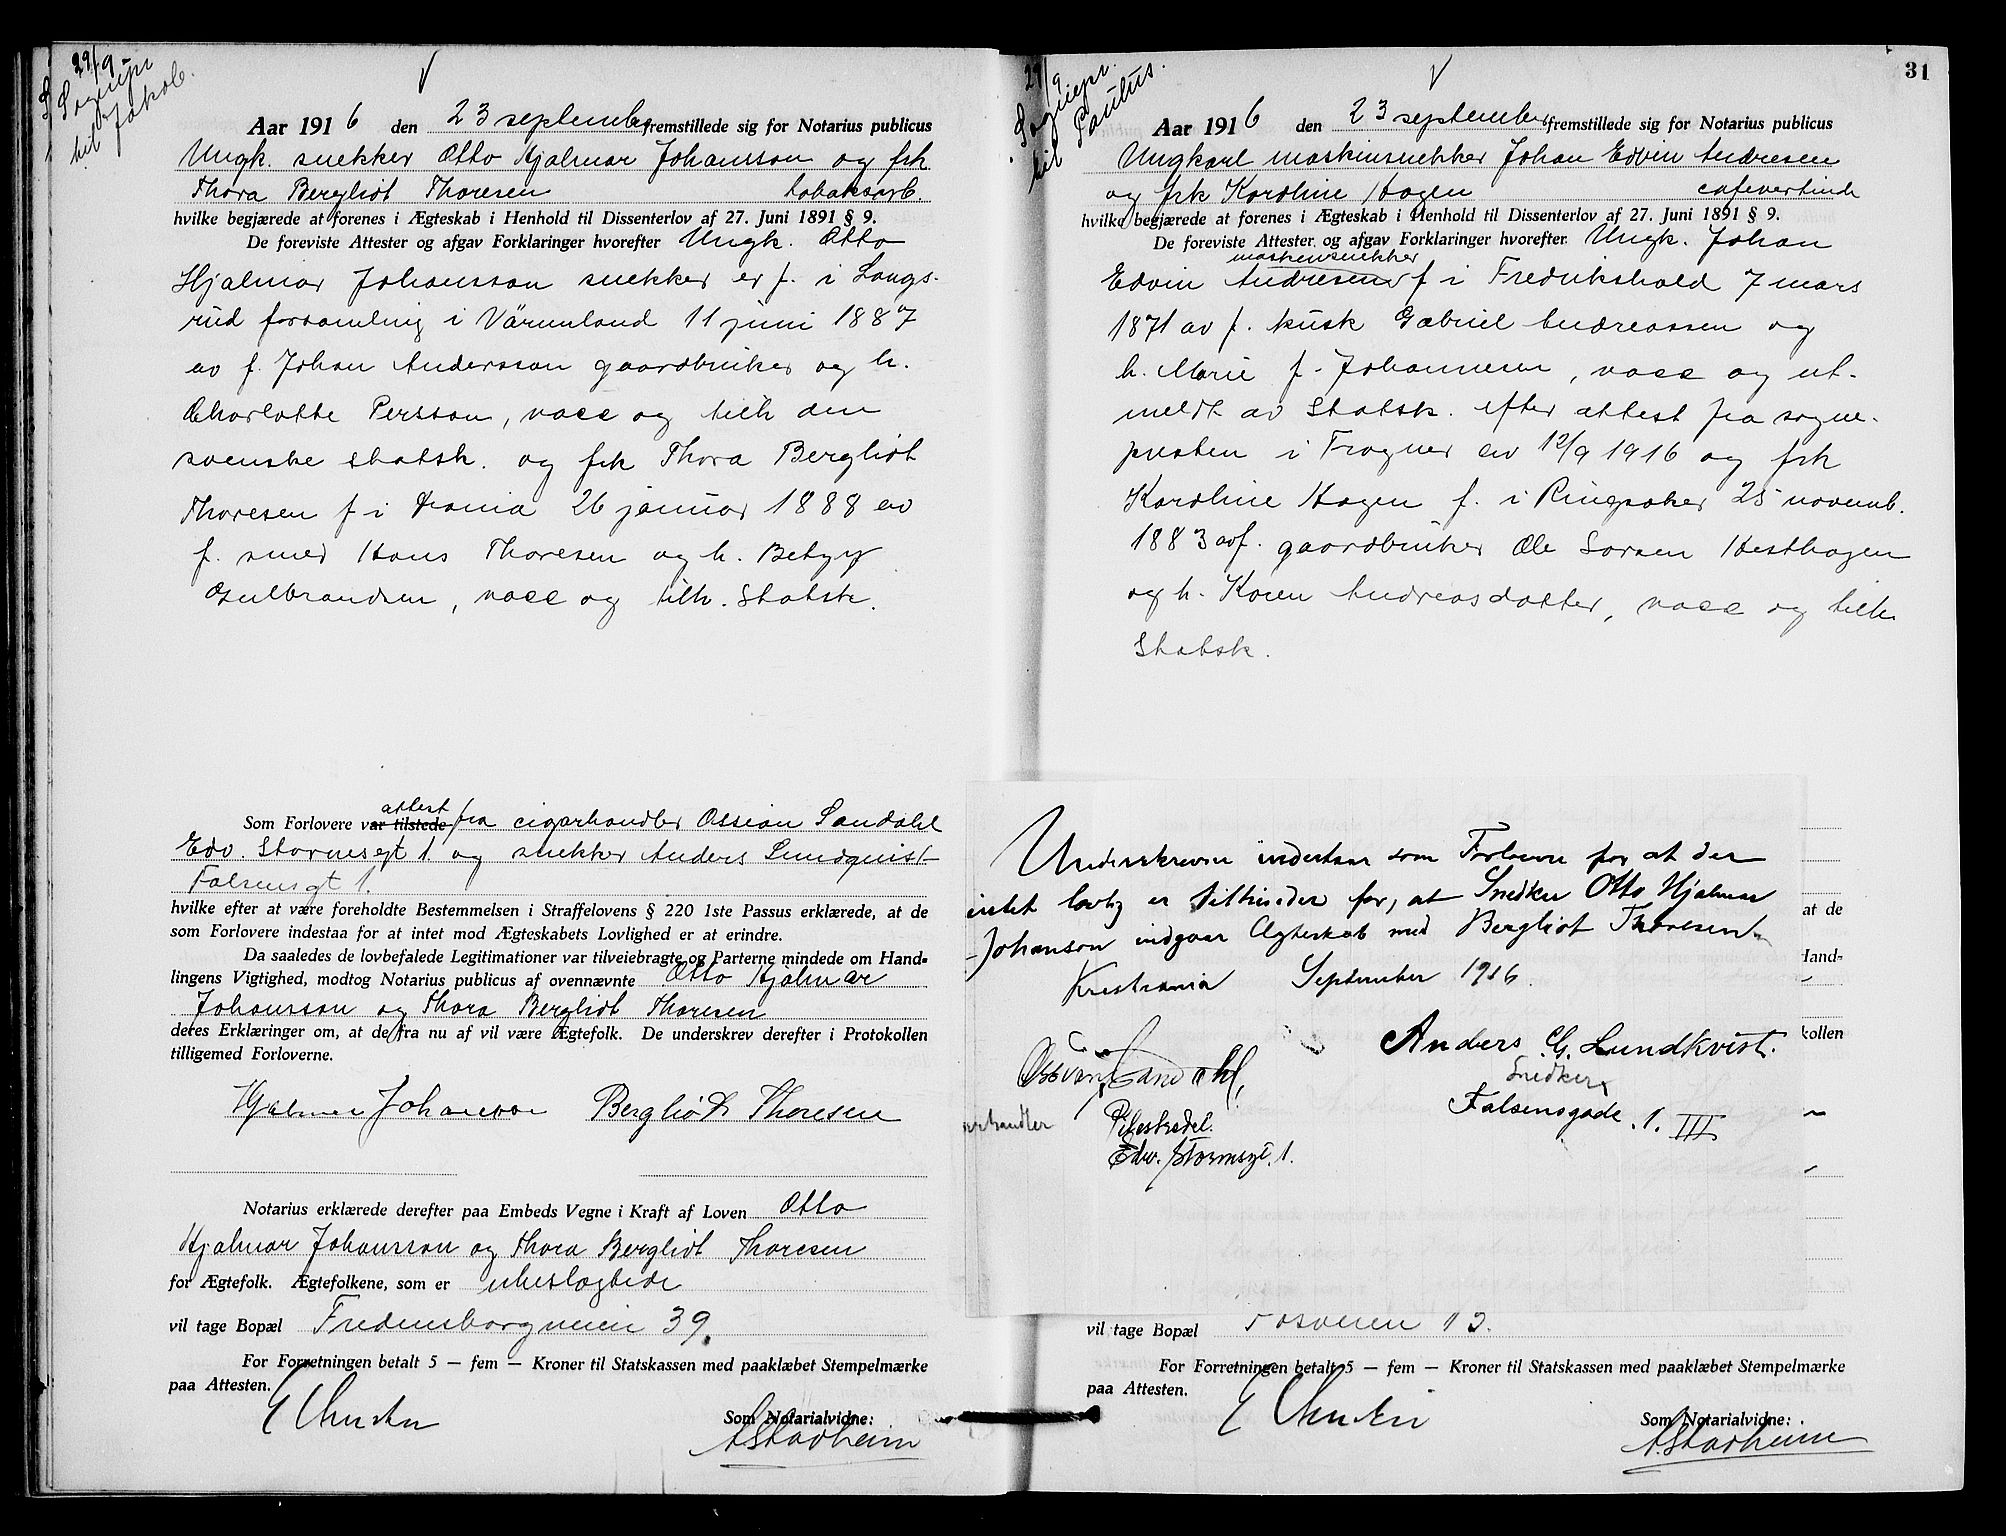 29/9
Sognepr
til Jakob.
Aar 1916 den 23 september fremstillede sig for Notarius publicus
Ungk. snekker Otto Hjalmar Johansson og frk.
Thora Bergliot Thoresen tobaksarb.
hvilke begjærede at forenes i Ægteskab i Henhold til Dissenterlov af 27. Juni 1891 § 9.
De foreviste Attester og afgav Forklaringer hvorefter Ungk. Otto
Hjalmar Johansson snekker er f. i Langs-
rud forsamling i Värmland 11 juni 1887
av f. Johan Andersson gaardbruker og h.
Charlotte Persson, vacc og tilh den
svenske statsk. og frk Thora Bergliot
Thoresen f i Krania 26 januar 1888 av
f. smed Hans Thoresen og h. Betzy
Gulbrandsen, vacc og tilh. Statsk.
Som Forlovere var tilstede attest fra cigarhandler Ossian Sandahl
Edv. Stormsgt 1 og snekker Anders Lundquist
Falsensgt 1.
hvilke efter at være foreholdte Bestemmelsen i Straffelovens § 220 1ste Passus erklærede, at de
som Forlovere indestaa for at intet mod Ægteskabets Lovlighed er at erindre.
Da saaledes de lovbefalede Legitimationer var tilveiebragte og Parterne mindede om Hand-
lingens Vigtighed, modtog Notarius publicus af ovennævnte Otto Hjalmar
Johansson og Thora Bergliot Thoresen
deres Erklæringer om, at de fra nu af vil være Ægtefolk. De underskrev derefter i Protokollen
tilligemed Forloverne.
Hjalmar Johanson Bergliot Thoresen
Notarius erklærede derefter paa Embeds Vegne i Kraft af Loven Otto
Hjalmar Johansson og Thora Bergliot Thoresen
for Ægtefolk. Ægtefolkene, som er ubeslægtede
vil tage Bopæl Fredensborgveien 39.
For Forretningen betalt 5 — fem — Kroner til Statskassen med paaklæbet Stempelmærke
paa Attesten.
Som Notarialvidne:
A Stadheim
31
29/9
Sognepr.
til Paulus.
Aar 1916 den 23 september fremstillede sig for Notarius publicus
Ungkarl maskinsnekker Johan Edvin Andresen
og frk Karoline Hagen cafevertinde
hvilke begjærede at forenes i Ægteskab i Henhold til Dissenterlov af 27. Juni 1891 § 9.
De foreviste Attester og afgav Forklaringer hvorefter Ungk. Johan
maskinsnekker
Edvin Andresen f i Fredrikshald 7 mars
1871 av f. kusk Gabriel Andreassen og
h. Marie f. Johannesen, vacc og ut-
meldt av Statsk. efter attest fra sogne-
presten i Frogner av 12/9 1916 og frk
Karoline Hagen f. i Ringsaker 25 novemb.
1883 av f. gaardbruker Ole Larsen Hesthagen
og h. Karen Andreasdatter, vacc og tilh
Statsk.
Underskrevne indestaar som Forlovere for at der
intet lovlig er tilhinder for, at Snedker Otto Hjalmar
Johanson indgaar Ægteskab med Bergliot Thoresen
Kristiania September 1916.
Ossian Sandahl, Anders G. Lundkvist.
Snedker
Falsensgade. 1. III
arhandler Pilestredet.
Edw. Stormsgt. 1.
at de
Hand-
kollen
vil tage Bopæl
For Forretningen betalt 5 — fem — Kroner til Statskassen med paaklæbet Stempelmærke
paa Attesten.
Som Notarialvidne:
A. Stadheim